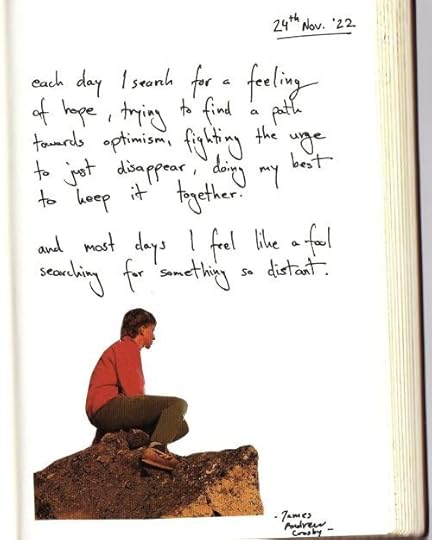 24th Nov. '22
each day I search for a feeling
of hope, trying to find a path
towards optimism, fighting the urge
to just disappear, doing my best
to keep it together.
and most days I feel like a fool
searching for something so distant.
- James
Andrew -
Crosby